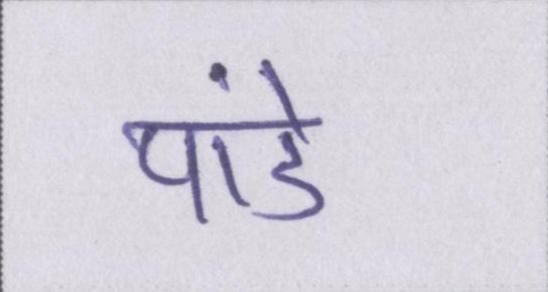 पांडे